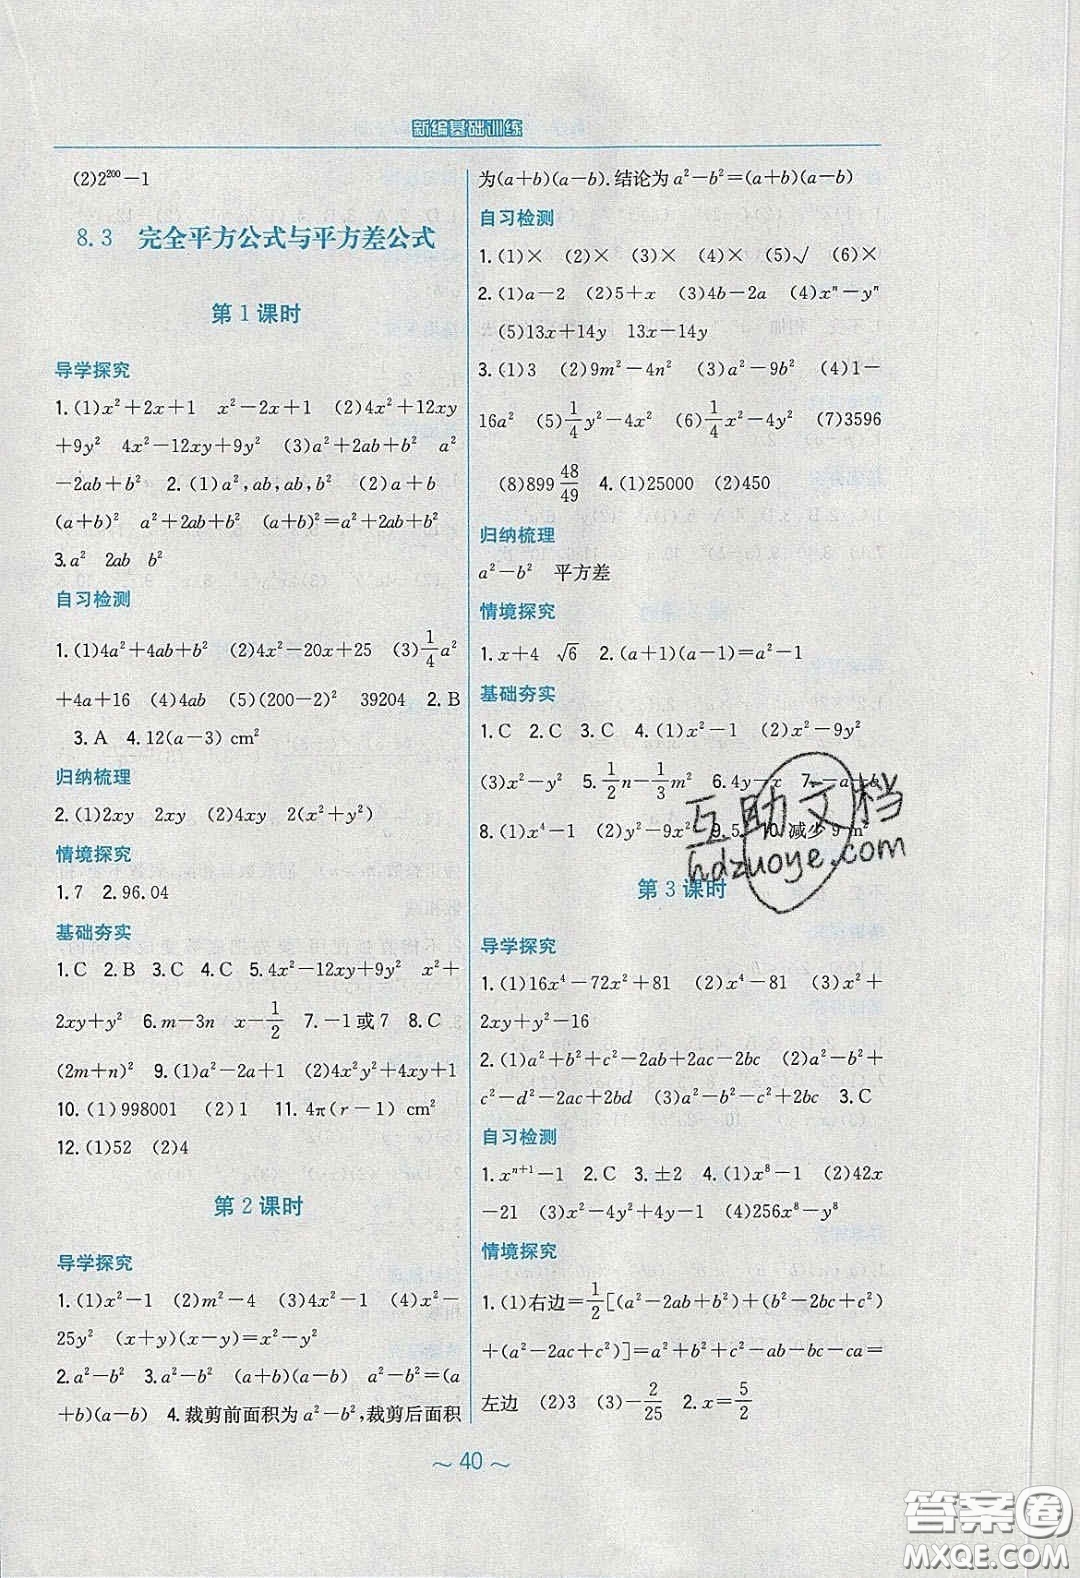 新编基础训练
(2)2²⁰⁰－1
8.3 完全平方公式与平方差公式
第1课时
导学探究
1.(1)x²＋2x＋1 x²－2x＋1 (2)4x²＋12xy
＋9y² 4x²－12xy＋9y² (3)a²＋2ab＋b² a²
－2ab＋b² 2.(1)a²,ab,ab,b² (2)a＋b
(a＋b)² a²＋2ab＋b² (a＋b)²＝a²＋2ab＋b²
3.a² 2ab b²
自习检测
1.(1)4a²＋4ab＋b² (2)4x²－20x＋25 (3)1/4a²
＋4a＋16 (4)4ab (5)(200－2)² 39204 2.B
3.A 4.12(a－3) cm²
归纳梳理
2.(1)2xy 2xy (2)4xy 2(x²＋y²)
情境探究
1.7 2.96.04
基础夯实
1.C 2.B 3.C 4.C 5.4x²－12xy＋9y² x²＋
2xy＋y² 6.m－3n x－1/2 7.－1或7 8.C
(2m＋n)² 9.(1)a²－2a＋1 (2)4x²y²＋4xy＋1
10.(1)998001 (2)1 11.4π(r－1) cm²
12.(1)52 (2)4
第2课时
导学探究
1.(1)x²－1 (2)m²－4 (3)4x²－1 (4)x²－
25y² (x＋y)(x－y)＝x²－y²
2.a²－b² 3.a²－b² (a＋b)(a－b) a²－b²＝(a
＋b)(a－b) 4.裁剪前面积为a²－b²,裁剪后面积
为(a＋b)(a－b).结论为a²－b²＝(a＋b)(a－b)
自习检测
1.(1)× (2)× (3)× (4)× (5)√ (6)×
2.(1)a－2 (2)5＋x (3)4b－2a (4)xⁿ－yⁿ
(5)13x＋14y 13x－14y
3.(1)3 (2)9m²－4n² (3)a²－9b² (4)1－
16a² (5)1/4y²－4x² (6)1/4x²－4y² (7)3596
(8)899 48/49 4.(1)25000 (2)450
归纳梳理
a²－b² 平方差
情境探究
1.x＋4 √6 2.(a＋1)(a－1)＝a²－1
基础夯实
1.C 2.C 3.C 4.(1)x²－1 (2)x²－9y²
(3)x²－y² 5.1/2n－1/3m² 6.4y－x 7.－a－b
8.(1)x⁴－1 (2)y²－9x² 9.5 10.减少9 m²
互助文档
hdzuoye.com
第3课时
导学探究
1.(1)16x⁴－72x²＋81 (2)x⁴－81 (3)x²＋
2xy＋y²－16
2.(1)a²＋b²＋c²－2ab＋2ac－2bc (2)a²－b²＋
c²－d²－2ac＋2bd (3)a²－b²－c²＋2bc 3.C
自习检测
1.xⁿ⁺¹－1 2.C 3.±2 4.(1)x⁸－1 (2)42x
－21 (3)x²－4y²＋4y－1 (4)256x⁸－y⁸
情境探究
1.(1)右边＝1/2[(a²－2ab＋b²)＋(b²－2bc＋c²)
＋(a²－2ac＋c²)]＝a²＋b²＋c²－ab－bc－ca＝
左边 (2)3 (3)－2/25 2.x＝5/2
～40～
答案圈
MXQE.COM